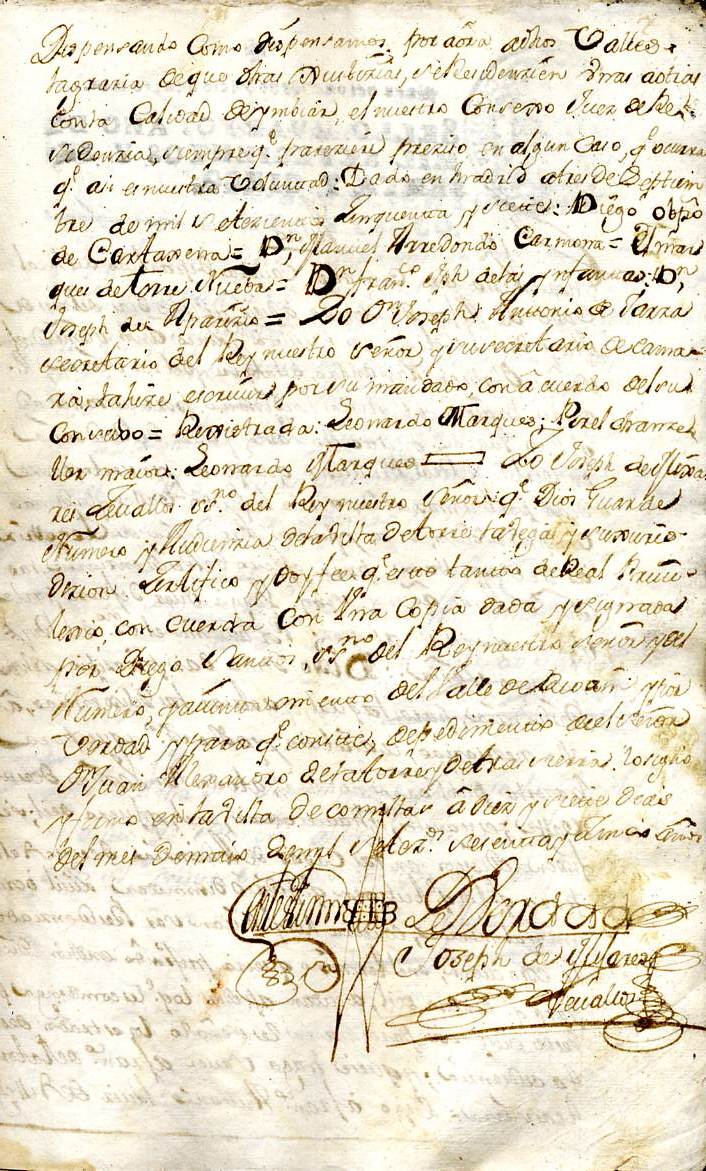 Dispensando Como dispensamos por aôra adhos Valles
la grazia de que dhas Audienzias, se Residenzien Unas aotras
con la Calidad de ymbiar, el nuestro Consexo Juez de Re-
sidenzia, siempre q.e pareziere preziso en algun Caso, q.e ocurra
q.e asi es nuestra Voluntad: Dado en Madrid a tres de Septiem
bre de mil setezientos zinquenta y siete: Diego obispo
de Cartaxena = D.n Manuel Arredondo Carmona = El mar
ques de torre Nueba = D.n fran.co Jph de las ynfantas: D.n
Joseph de Aparizio = Yo D.n Joseph Antonio de Yarza
secretario del Rey nuestro señor y su secretario de cama-
ra, la hize escrivir por su mandado, con acuerdo de los su
Consexo = Rexistrada: Leonardo Marques; Por el chanze
ller maior: Leonardo Marques = Yo Joseph de
Zevallos ss.no del Rey nuestro señor q.e Dios Guarde
Numero y Audienzia de la Villa de torre la Vega y su juris-
dizion Zertifico y doy fee q.e este tanto de Real Privi-
lexio, con cuerda Con Una Copia dada y signada
por Diego Santos, ss.no del Rey nuestro señor y del
Numero, y aiuntamiento del Valle de y por
Verdad y para q.e conste, de pedimento del señor
D.n Juan Alexandro de la torre y de tra sierra lo signo
y firmo en la Villa de comillas â diez y siete dias
del mes de maio de myl setez.os sesenta y zinco años
Joseph de
Zevallos